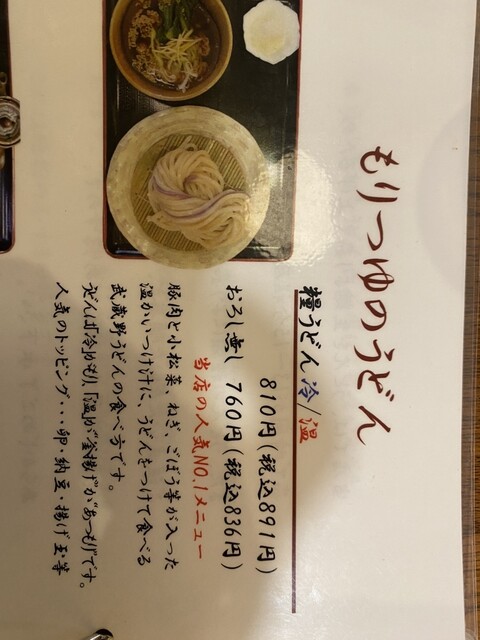 もりつゆのうどん
糧うどん 冷/温
810円(税込891円)
おろし無し 760円(税込836円)
当店の人気NO.1メニュー
豚肉と小松菜、ねぎ、ごぼう等が入った
温かいつけ汁に、うどんをつけて食べる
武蔵野うどんの食べ方です。
うどんは「冷」がもり、「温」が釜揚げかあつもりです。
人気のトッピング・・・卵・納豆・揚げ玉等